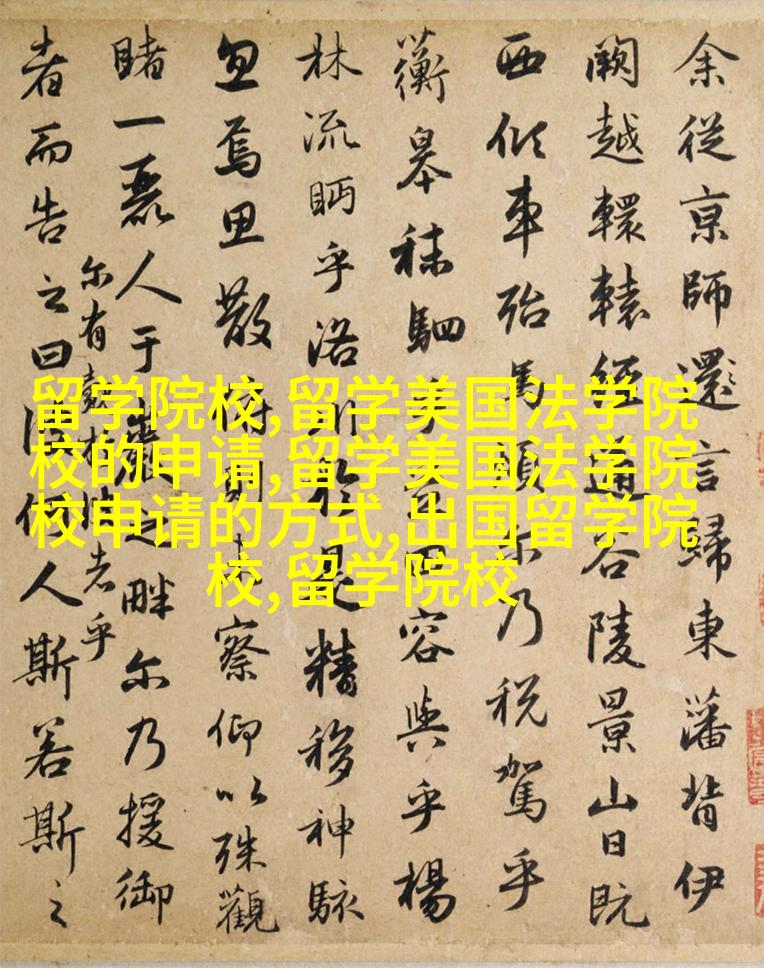 留学院校,留学美国法学院
校的申请,留学美国法学院
校申请的方式,出国留学院
校,留学院校
余從京師還言歸東藩背伊
闕越轘轅經通谷陵景山日既
西傾車殆馬煩尔乃税駕乎
蘅皋秣駟乎田容與乎楊
林流眄乎洛川於是精移神駭
忽焉思散俯則未察仰以殊觀
睹一麗人于巖之畔尔乃援御
者而告之曰彼何人斯若斯之
尔有覿於彼者乎